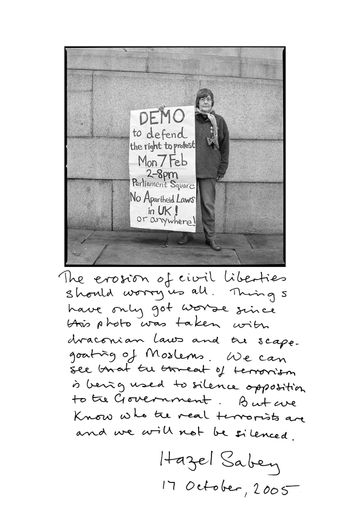 DEMO
to defend
the right to protest
Mon 7 Feb
2-8pm
Parliament Square
No Apartheid Laws
in UK!
or anywhere!
The erosion of civil liberties
should worry us all. Things
have only got worse since
this photo was taken with
draconian laws and the scape-
goating of Moslems. We can
see that the threat of terrorism
is being used to silence opposition
to the Government. But we
know who the real terrorists are
and we will not be silenced.
Hazel Sabey
17 October, 2005